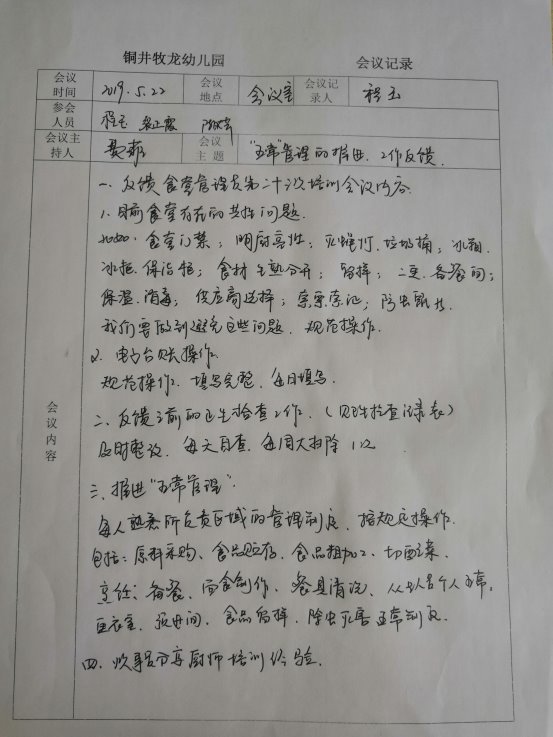 铜井牧龙幼儿园 会议记录
会议时间 2019.5.22 会议地点 会议室 会议记录人 程玉
参会人员 程玉
会议主持人 会议主题 "五常"管理的推进、工作反馈
会议内容
一、反馈食堂管理员第二十次培训会议内容
1、目前食堂存在的共性问题
食堂门禁；明厨亮灶；灭蝇灯、垃圾桶；冰箱、
冰柜、保洁柜；食材生熟分开；留样；二更、备餐间；
保温、消毒；供应商选择；索票索证；防虫
我们要做到避免这些问题、规范操作。
2、电子台账操作
规范操作、填写完整、每日填写。
二、反馈之前的卫生检查工作、（卫生检查记录表）
及时整改、每天自查、每周大扫除1次
三、推进"五常管理"
每人熟悉所负责区域的管理制度、按规定操作.
包括：原料采购、食品贮存、食品粗加工、切配菜、
烹饪；备餐、面食制作、餐具清洗、从业者个人五常、
更衣室、食品留样、除虫灭害五常制度
四、炊事员分享厨师培训经验.